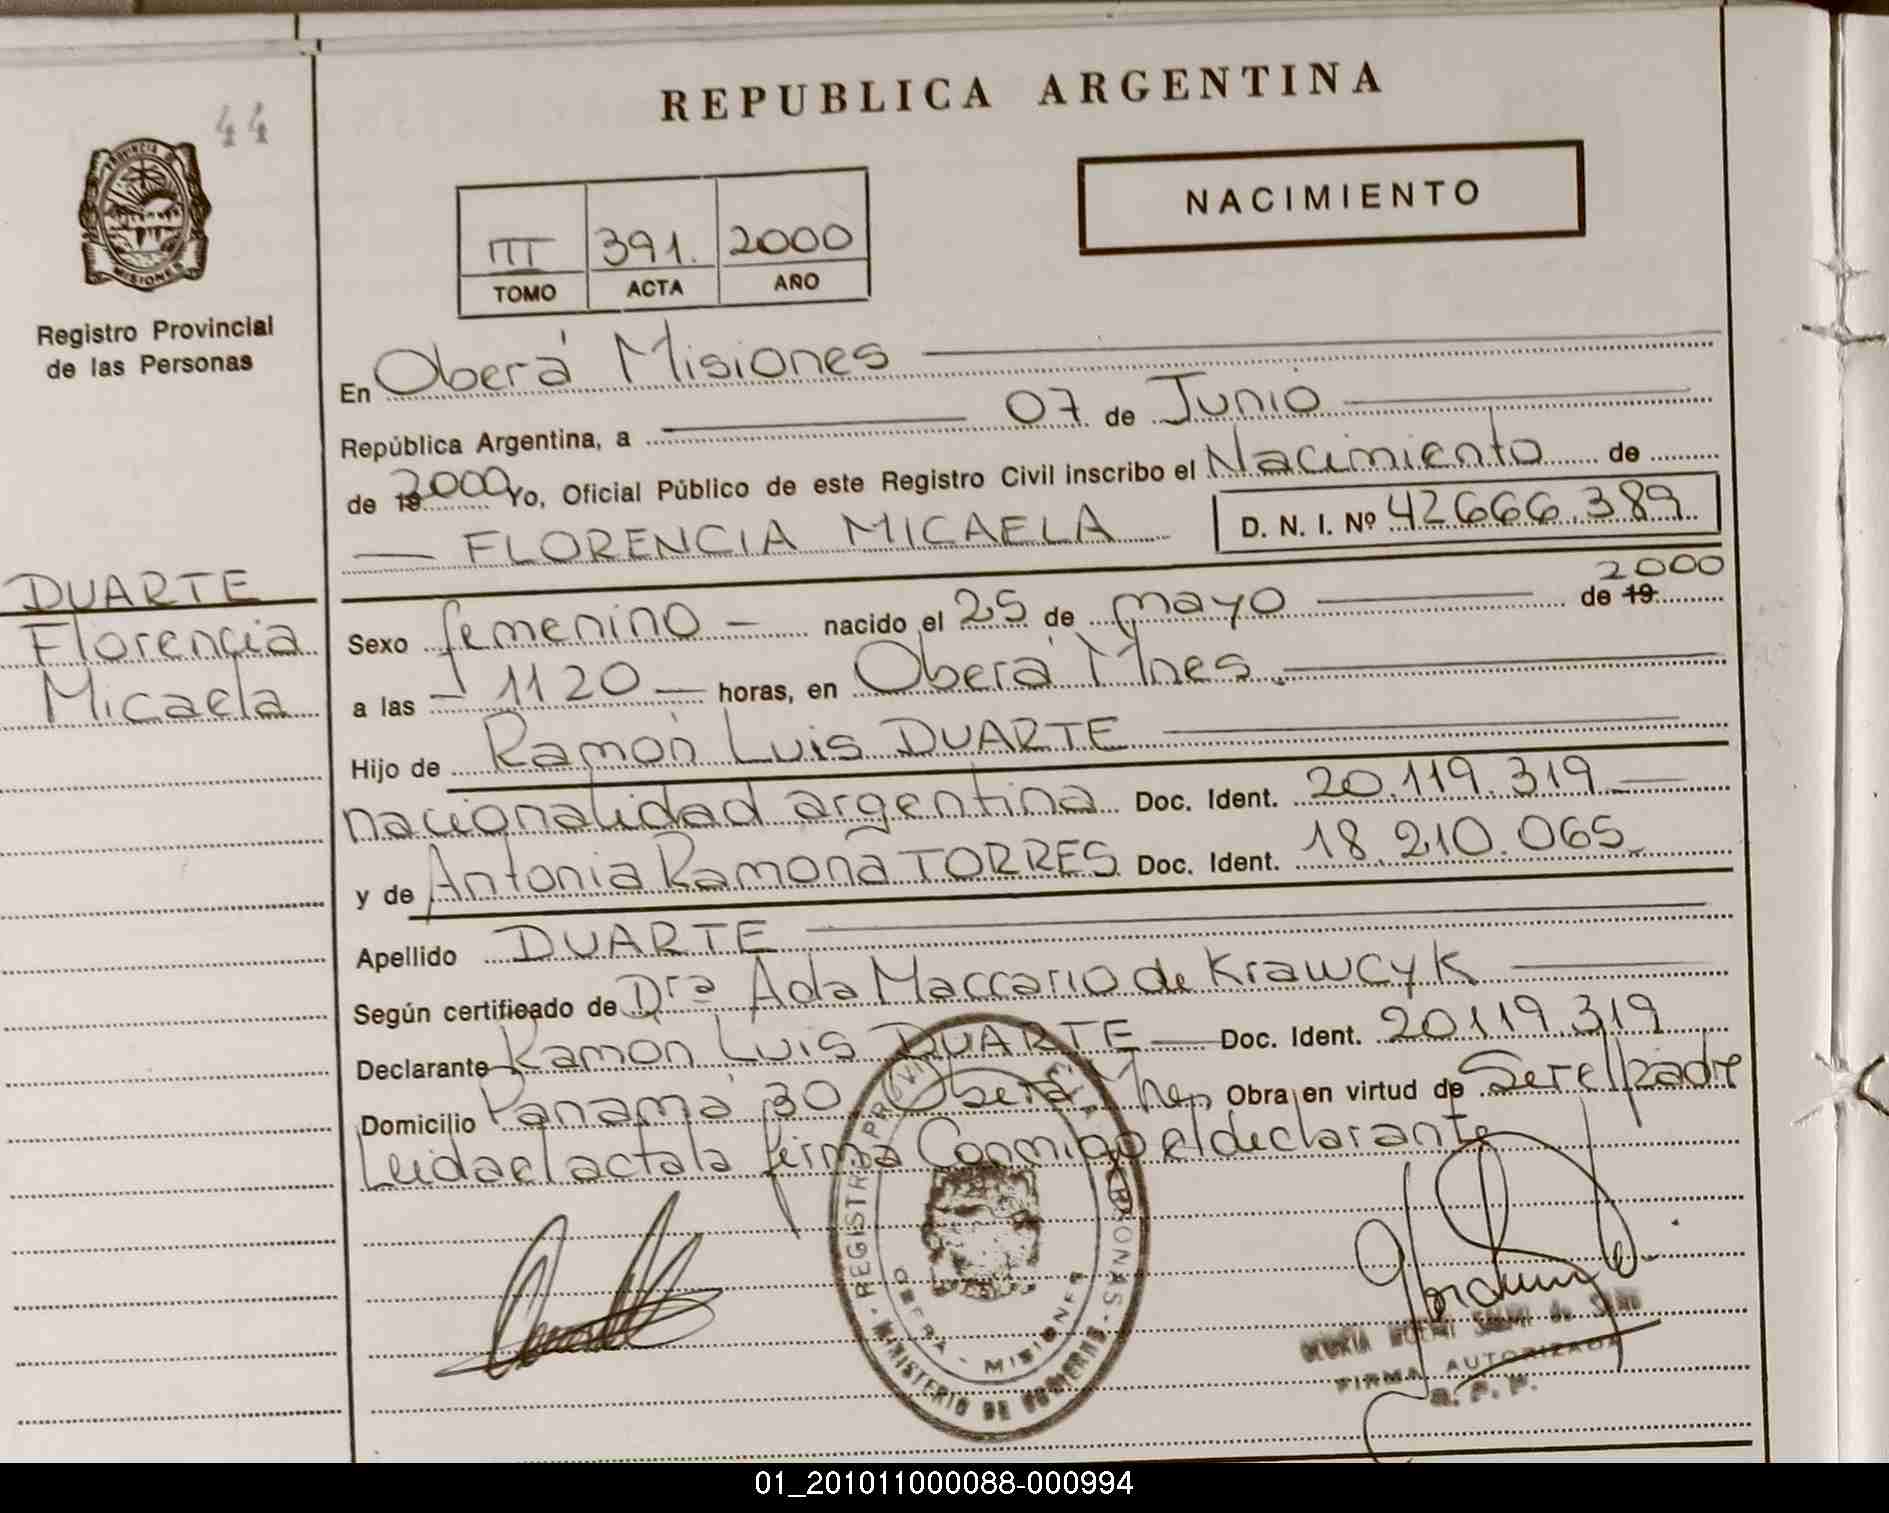 44
REPUBLICA ARGENTINA
NACIMIENTO
PROVINCIA DE
MISIONES
Registro Provincial
de las Personas
III 391. 2000
TOMO ACTA AÑO
En Oberá Misiones
República Argentina, a 07 de Junio
de 19 2000 Yo, Oficial Público de este Registro Civil inscribo el Nacimiento de
FLORENCIA MICAELA D. N. I. Nº 42666.389
DUARTE
Florencia
Micaela
Sexo femenino nacido el 25 de mayo de 19 2000
a las 11 20 horas, en Oberá Mnes.
Hijo de Ramón Luis DUARTE
nacionalidad argentina Doc. Ident. 20.119.319
y de Antonia Ramona TORRES Doc. Ident. 18.210.065
Apellido DUARTE
Según certificado de Dra Ada Maccario de Krawcyk
Declarante Ramon Luis DUARTE Doc. Ident. 20119.319
Domicilio Panamá 30 Oberá Mnes Obra en virtud de Ser el padre
Leida el acta la firma Conmigo el declarante
REGISTRO PROVINCIAL PERSONAS
OBERA - MISIONES
MINISTERIO DE GOBIERNO
FIRMA AUTORIZADA
R. P. P.
01_201011000088-000994